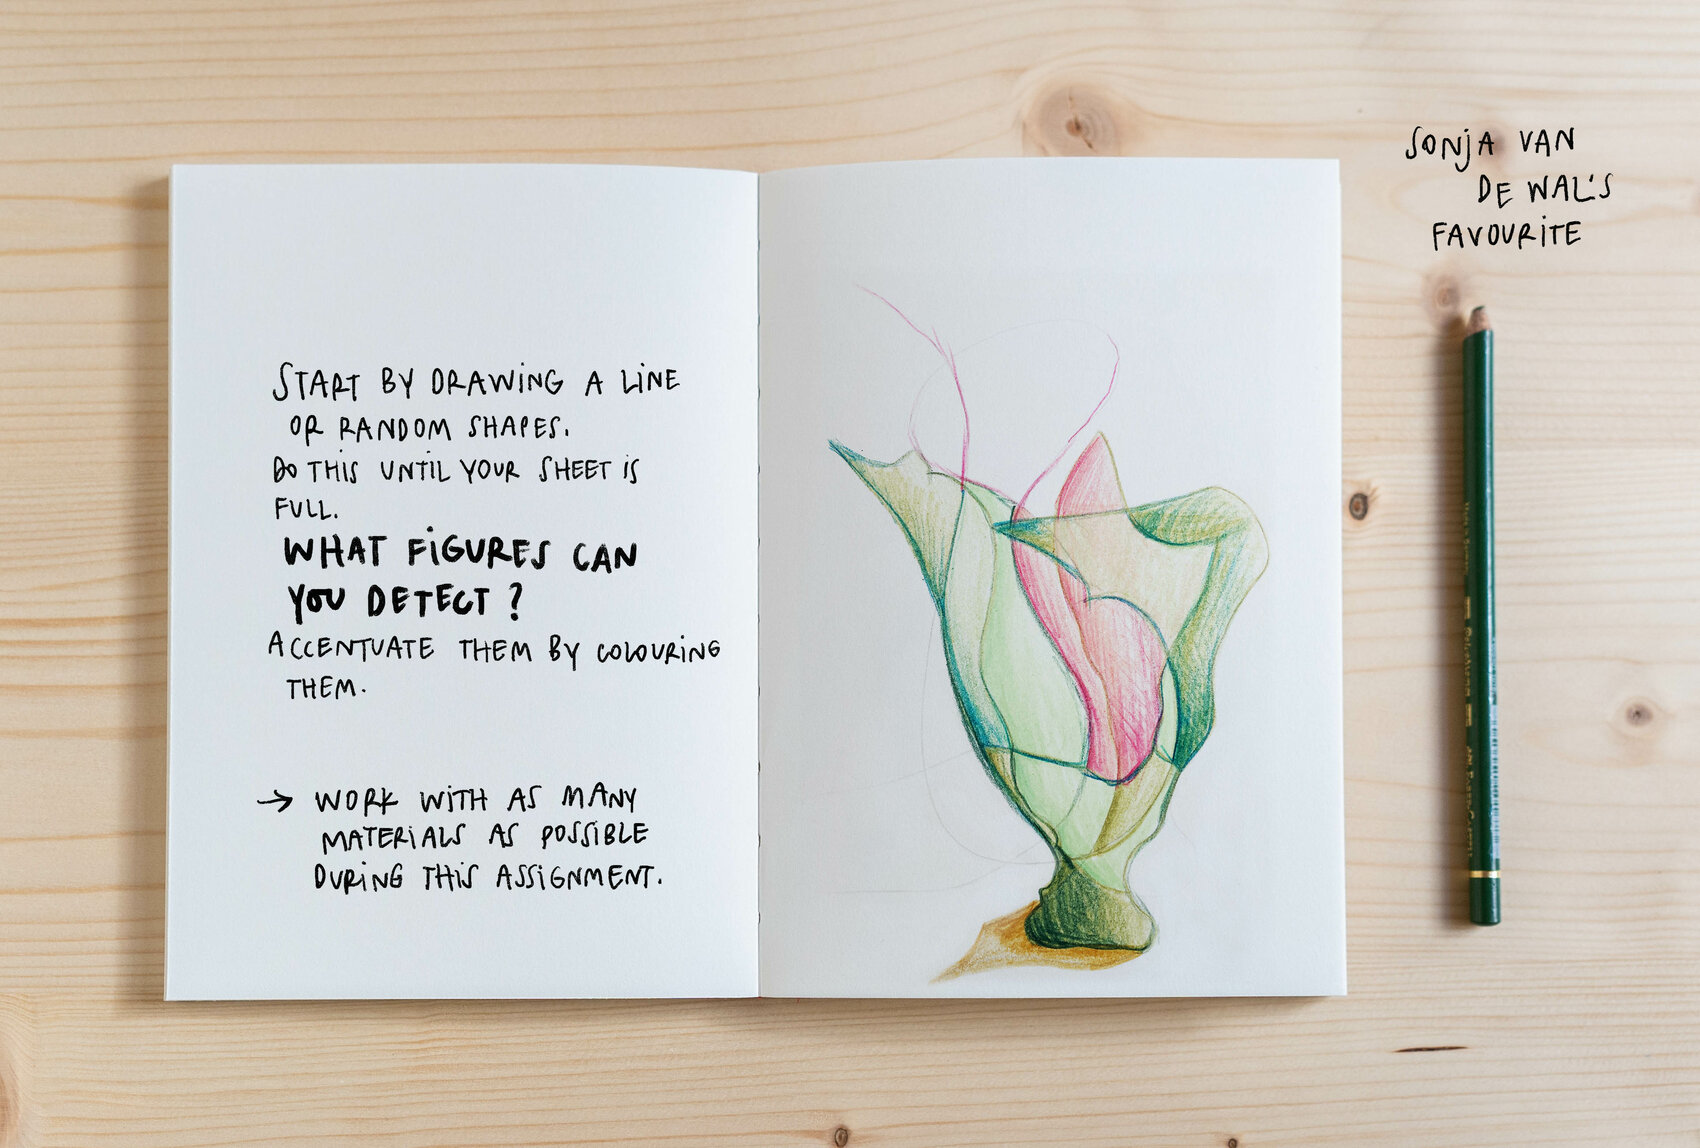 START BY DRAWING A LINE
OR RANDOM SHAPES.
DO THIS UNTIL YOUR SHEET IS
FULL.
WHAT FIGURES CAN
YOU DETECT?
ACCENTUATE THEM BY COLOURING
THEM.
→ WORK WITH AS MANY
MATERIALS AS POSSIBLE
DURING THIS ASSIGNMENT.
SONJA VAN
DE WAL'S
FAVOURITE